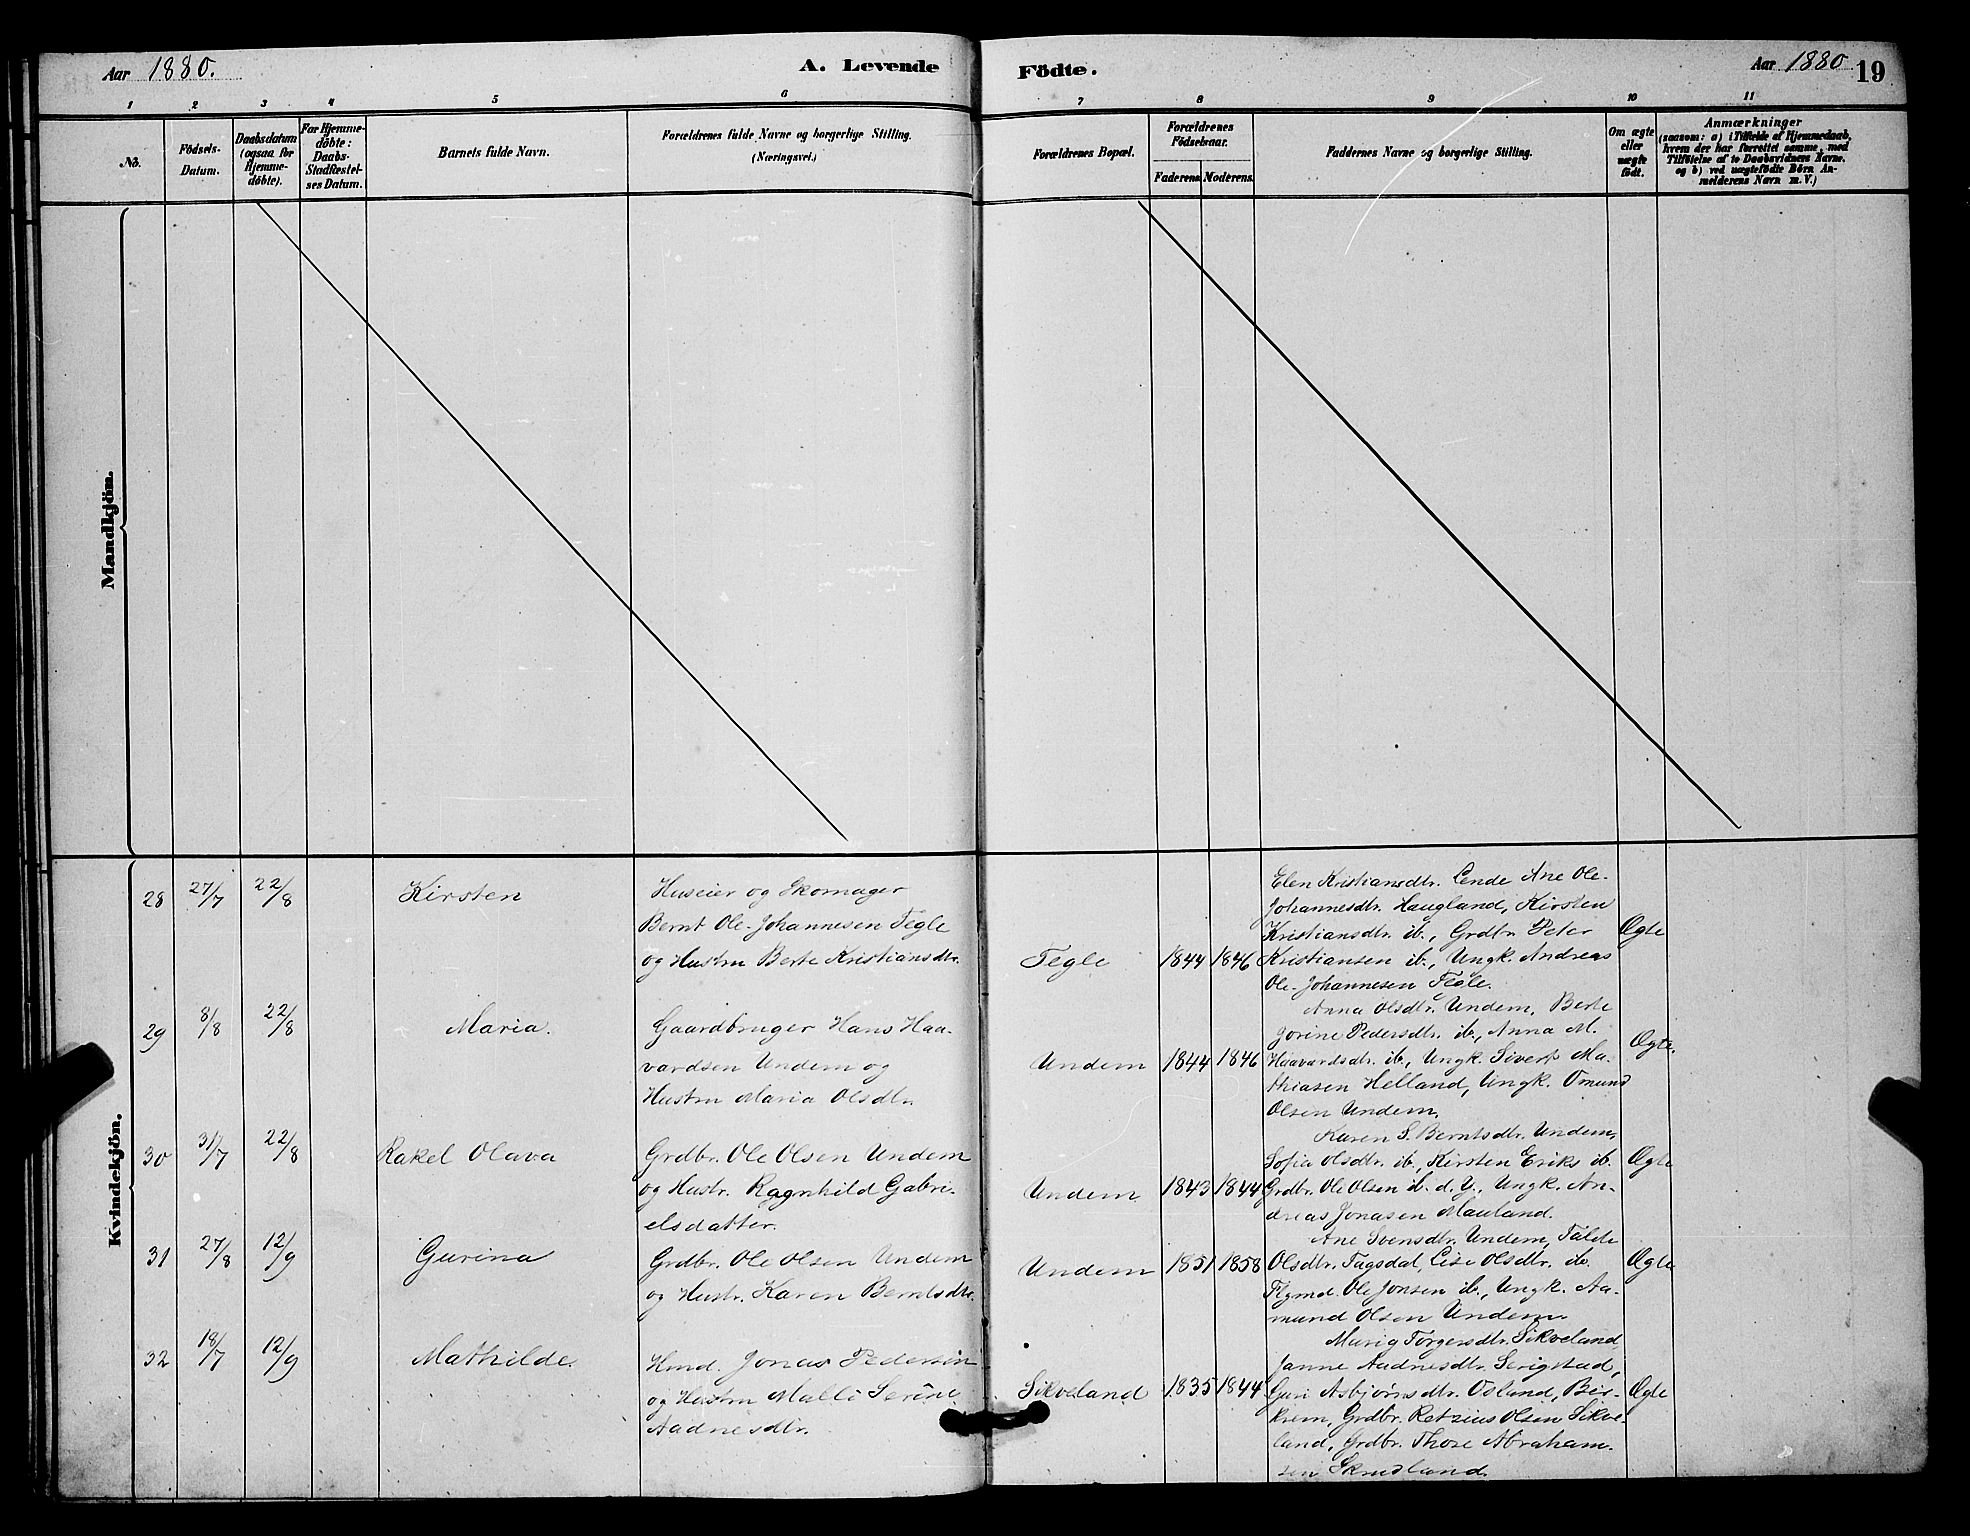 Aar 1880.
A. Levende
Födte.
Aar 1880
19
1 2 3 4 5 6 7 8 9 10 11
No.
Födsels-
Datum.
Daabsdatum
(ogsaa for
Hjemme-
döbte).
For Hjemme-
döbte:
Daabs-
Stadfæstel-
ses Datum.
Barnets fulde Navn.
Forældrenes fulde Navne og borgerlige Stilling.
(Næringsvei.)
Forældrenes Bopæl.
Forældrenes
Födselsaar.
Faderens. Moderens.
Faddernes Navne og borgerlige Stilling.
Om ægte
eller
uægte
födt.
Anmærkninger
(saasom: a) i Tilfælde af Hjemmedaab,
hvem der har forrettet samme, med
Tilföielse af to Daabsvidners Navne,
og b) ved uægtefödte Börn An-
melderens Navn m. V.)
Mandkjön.
Kvindekjön.
28 27/7 22/8 Kirsten
Huseier og Skomager
Bernt Ole-Johannesen Tegle
og Hustru Berte Kristiansdtr.
Tegle 1844 1846
Elen Kristiansdtr. Lende Ane Ole-
Johannesdtr. Haugland, Kirsten
Kristiansdtr. ib., Grdbr. Peter
Kristiansen ib., Ungk. Andreas
Ole-Johannesen Tegle.
Ægte
29 8/8 22/8 Maria.
Gaardbruger Hans Haa-
vardsen Undem og
Hustru Maria Olsdtr.
Undem 1844 1846
Anna Olsdtr. Undem, Berte
Jorine Pedersdtr. ib., Anna M.
Haavardsdtr. ib., Ungk. Sivert Ma-
thiasen Helland, Ungk. Omund
Olsen Undem.
Ægte.
30 31/7 22/8 Rakel Olava
Grdbr. Ole Olsen Undem
og Hustr. Ragnhild Gabri-
elsdatter.
Undem 1843 1844
Karen S. Berntsdtr. Undem,
Sofia Olsdtr. ib., Kirsten Eriks ib.
Grdbr. Ole Olsen ib. d. Y., Ungk. An-
dreas Jonasen Mauland.
Ægte
31 27/8 12/9 Gurina
Grdbr. Ole Olsen Undem
og Hustr. Karen Berntsdtr.
Undem 1851 1858
Ane Svensdtr. Undem,
Olsdtr. Tagsdal, Lise Olsdtr. ib.
Flymd. Ole Jonsen ib., Ungk. Aa-
mund Olsen Undem.
Ægte
32 18/7 12/9 Mathilde.
Hmd. Jonas Pedersen
og Hustru Malli Serine
Aadnesdtr.
Sikveland 1835 1844
Torgersdtr. Sikveland,
Janne Aadnesdtr. Serigstad,
Guri Asbjørnsdtr. Osland, Bir-
krem, Grdbr. Retzius Olsen Sikve-
land, Grdbr. Thore Abraham-
sen Skrudland.
Ægte